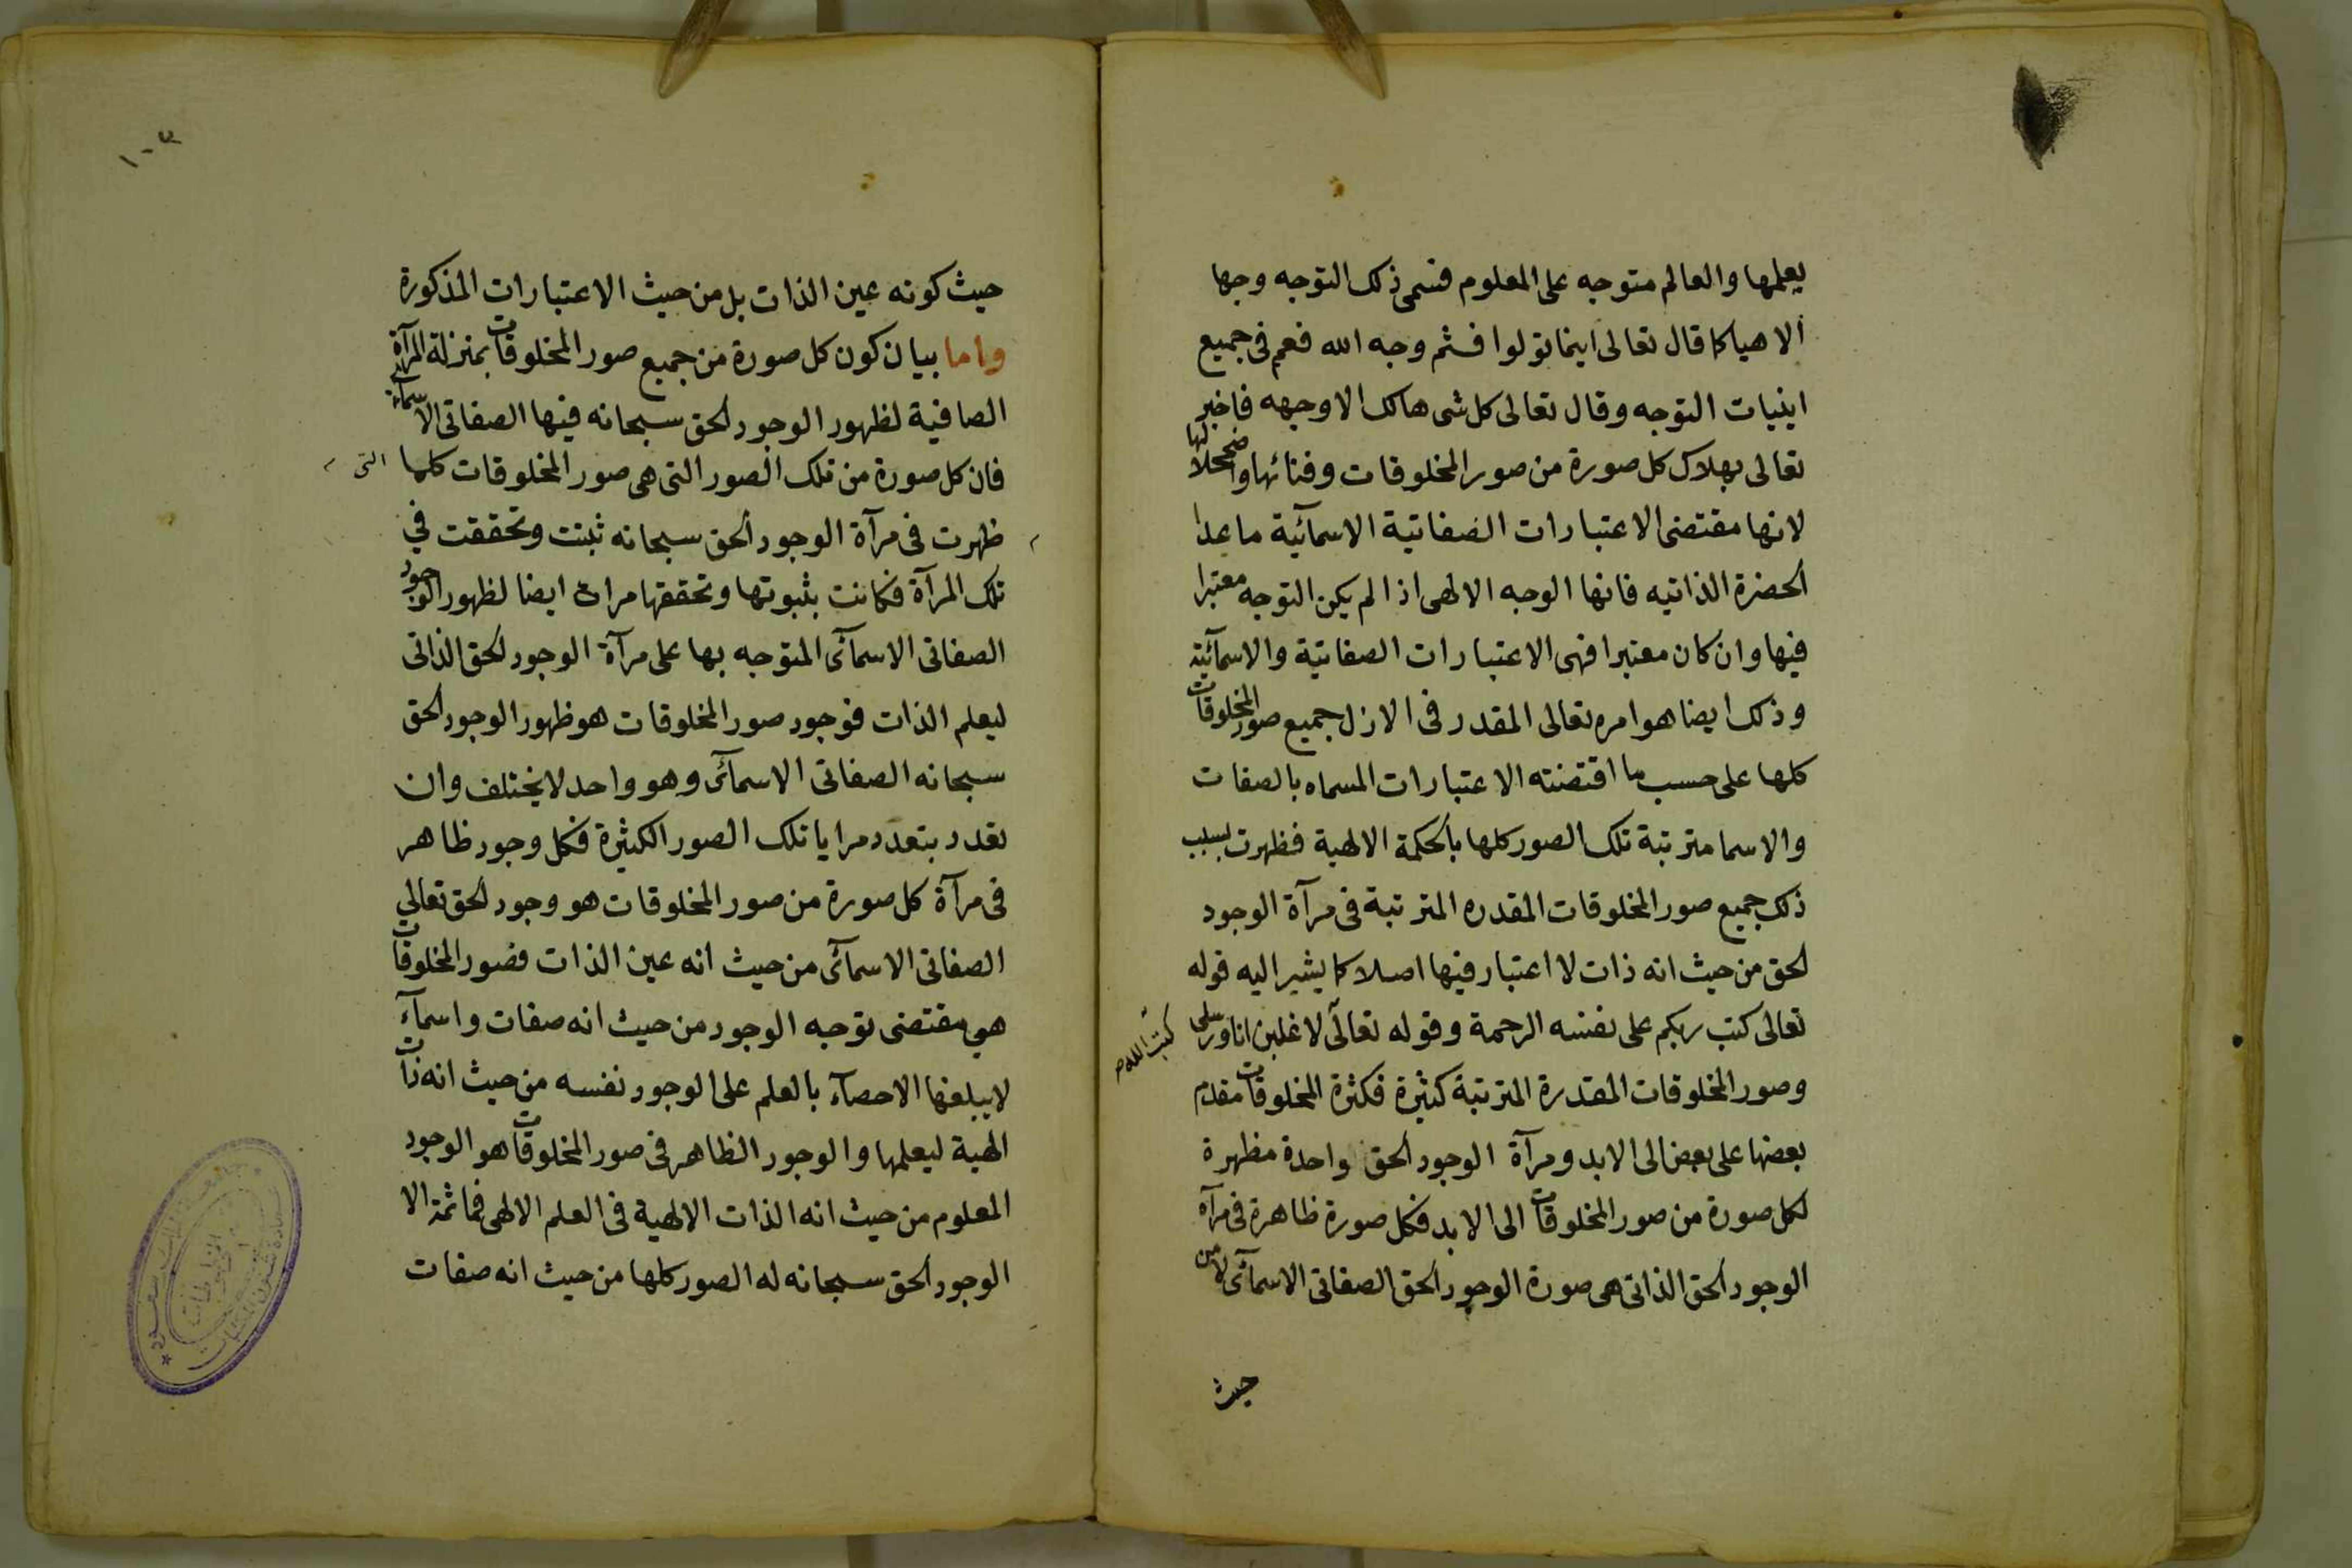 يعلمها والعالم متوجه على المعلوم فسمى ذلك التوجه وجها
الاهيا كما قال تعالى اينما تولوا فثم وجه الله فعم فى جميع
اينيات التوجه وقال تعالى كل شى هالك الا وجهه فاخبر
تعالى بهلاك كل صورة من صور المخلوقات وفنائها واضمحلالها
لانها مقتضى الاعتبارات الصفاتية الاسمآئية ما عدا
الحضرة الذاتيه فانها الوجه الالهى اذا لم يكن التوجه معتبرا
فيها وان كان معتبرا فهى الاعتبارات الصفاتية والاسمآئية
وذلك ايضا هو امره تعالى المقدر فى الازل جميع صور المخلوقات
كلها على حسب ما اقتضته الاعتبارات المسماه بالصفات
والاسما مترتبة تلك الصور كلها بالحكمة الالهية فظهرت بسبب
ذلك جميع صور المخلوقات المقدره المترتبة فى مرآة الوجود
الحق من حيث انه ذات لا اعتبار فيها اصلا كما يشير اليه قوله
تعالى كتب ربكم على نفسه الرحمة وقوله تعالى لاغلبن انا ورسلى
كتب الله
وصور المخلوقات المقدرة المترتبة كثيرة فكثرة المخلوقات مقدم
بعضها على بعض الى الابد ومرآة الوجود الحق واحدة مظهرة
لكل صورة من صور المخلوقات الى الابد فكل صورة ظاهرة فى مرآة
الوجود الحق الذاتى هى صورة الوجود الحق الصفاتى الاسمآئى لا من
حيث
١٠٣
حيث كونه عين الذات بل من حيث الاعتبارات المذكورة
واما بيان كون كل صورة من جميع صور المخلوقات بمنزلة المرآة
الصافية لظهور الوجود الحق سبحانه فيها الصفاتى الاسمآئى
فان كل صورة من تلك الصور التى هى صور المخلوقات كلها
التى
ظهرت فى مرآة الوجود الحق سبحانه ثبتت وتحققت في
تلك المرآة فكانت بثبوتها وتحققها مرات ايضا لظهور الوجود
الصفاتى الاسمآئى المتوجه بها على مرآة الوجود الحق الذاتى
ليعلم الذات فوجود صور المخلوقات هو ظهور الوجود الحق
سبحانه الصفاتى الاسمآئى وهو واحد لا يختلف وان
تعدد بتعدد مرايا تلك الصور الكثيرة فكل وجود ظاهر
فى مرآة كل صورة من صور المخلوقات هو وجود الحق تعالي
الصفاتى الاسمآئى من حيث انه عين الذات فصور المخلوقات
هي مقتضى توجه الوجود من حيث انه صفات واسمآء
لا يبلغها الاحصآء بالعلم على الوجود نفسه من حيث انه ذات
الهية ليعلمها والوجود الظاهر فى صور المخلوقات هو الوجود
المعلوم من حيث انه الذات الالهية فى العلم الالهى فما ثمة الا
الوجود الحق سبحانه له الصور كلها من حيث انه صفات